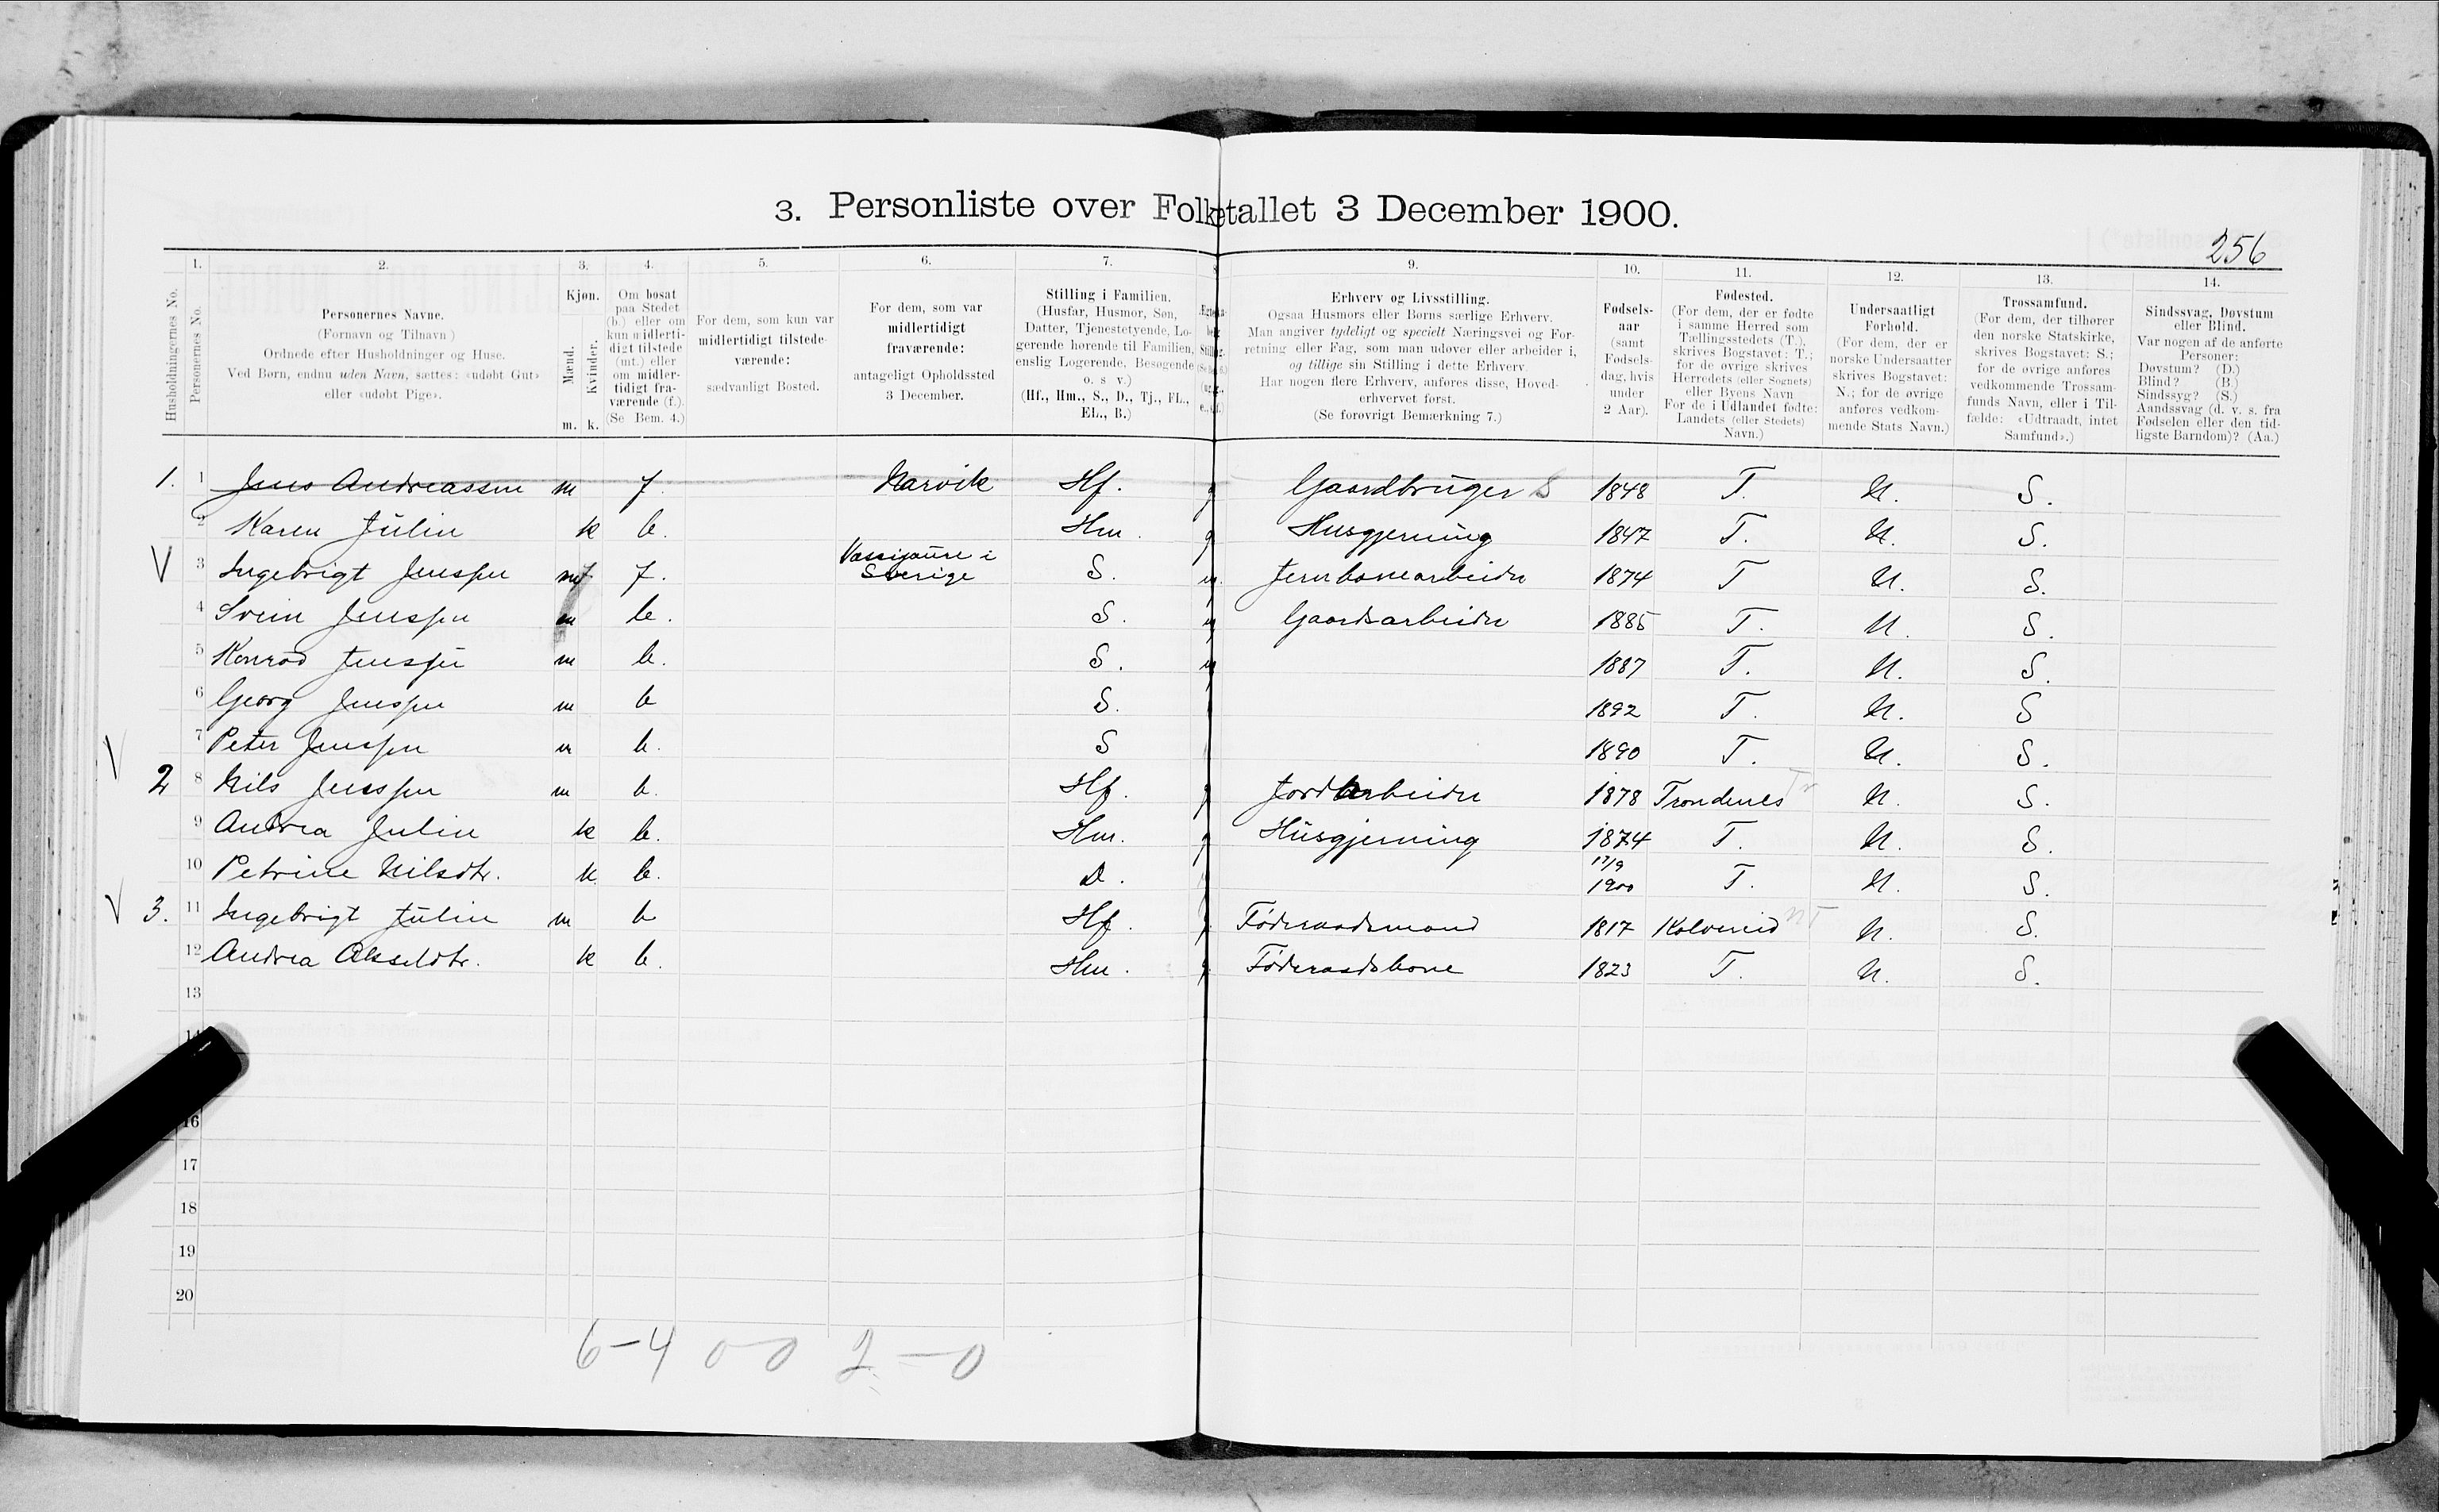 3. Personliste over Folketallet 3 December 1900.
256
1. 2. 3. 4. 5. 6. 7. 9. 10. 11. 12. 13. 14.
Husholdningernes No.
Personernes No.
Personernes Navne.
(Fornavn og Tilnavn)
Ordnede efter Husholdninger og Huse.
Ved Børn, endnu uden Navn, sættes: «udøbt Gut»
eller «udøbt Pige».
Kjøn.
Mænd.
Kvinder.
m. k.
Om bosat
paa Stedet
(b.) eller om
kun midlerti-
digt tilstede
(mt.) eller
om midler-
tidigt fra-
værende (f.)
(Se Bem. 4.)
For dem, som kun var
midlertidigt tilstede-
værende:
sædvanligt Bosted.
For dem, som var
midlertidigt
fraværende:
antageligt Opholdssted
3 December.
Stilling i Familien.
(Husfar, Husmor, Søn,
Datter, Tjenestetyende, Lo-
gerende hørende til Familien,
enslig Logerende, Besøgende
o. s v.)
(Hf., Hm., S., D., Tj., FL.,
EL., B.)
Erhverv og Livsstilling.
Ogsaa Husmors eller Børns særlige Erhverv.
Man angiver tydeligt og specielt Næringsvei og For-
retning eller Fag, som man udøver eller arbeider i,
og tillige sin Stilling i dette Erhverv.
Har nogen flere Erhverv, anføres disse, Hoved-
erhvervet først.
(Se forøvrigt Bemærkning 7.)
Fødsels-
aar
(samt
Fødsels-
dag, hvis
under
2 Aar).
Fødested.
(For dem, der er fødte
i samme Herred som
Tællingsstedets (T.),
skrives Bogstavet: T.;
for de øvrige skrives
Herredets (eller Sognets)
eller Byens Navn
For de i Udlandet fødte:
Landets (eller Stedets)
Navn.)
Undersaatligt
Forhold.
(For dem, der er
norske Undersaatter
skrives Bogstavet:
N.; for de øvrige
anføres vedkom-
mende Stats Navn.)
Trossamfund.
(For dem, der tilhører
den norske Statskirke,
skrives Bogstavet: S.;
for de øvrige anføres
vedkommende Trossam-
funds Navn, eller i Til-
fælde: «Udtraadt, intet
Samfund».)
Sindssvag, Døvstum
eller Blind.
Var nogen af de anførte
Personer:
Døvstum? (D.)
Blind? (B.)
Sindssyg? (S.)
Aandssvag (d. v. s. fra
Fødselen eller den tid-
ligste Barndom)? (Aa.)
1. 1 Jens Andreassen m f. Narvik Hf. g Gaardbruger S 1848 T. N. S.
2 Karen Julin k b. Hm. g Husgjerning 1847 T. N. S.
V 3 Ingebrigt Jenssen m f. Vassijaure i Sverige S. u. Jernbanearbeider 1874 T N. S.
4 Svein Jenssen m b. S. u Gaardsarbeider 1885 T. N. S.
5 Konrad Jenssen m b. S. u 1887 T. N. S.
6 Georg Jenssen m b S. 1892 T. N. S
7 Peter Jenssen m b. S 1890 T. N. S.
V 2 8 Nils Jenssen m b. Hf. g Jordarbeider 1878 Trondenes Tr N. S.
9 Andrea Julin k b. Hm. g Husgjerning 1874 T. N. S.
10 Petrine Nilsdtr. k. b. D. 17/9 1900 T. N. S.
V 3. 11 Ingebrigt Julin m b Hf. g. Føderaadsmand 1817 Kolvereid NT N. S.
12 Andrea Akseldtr. k b. Hm. g. Føderaadskone 1823 T. N. S.
13
14
16
17
18
19
20
6-4 0-0 2-0